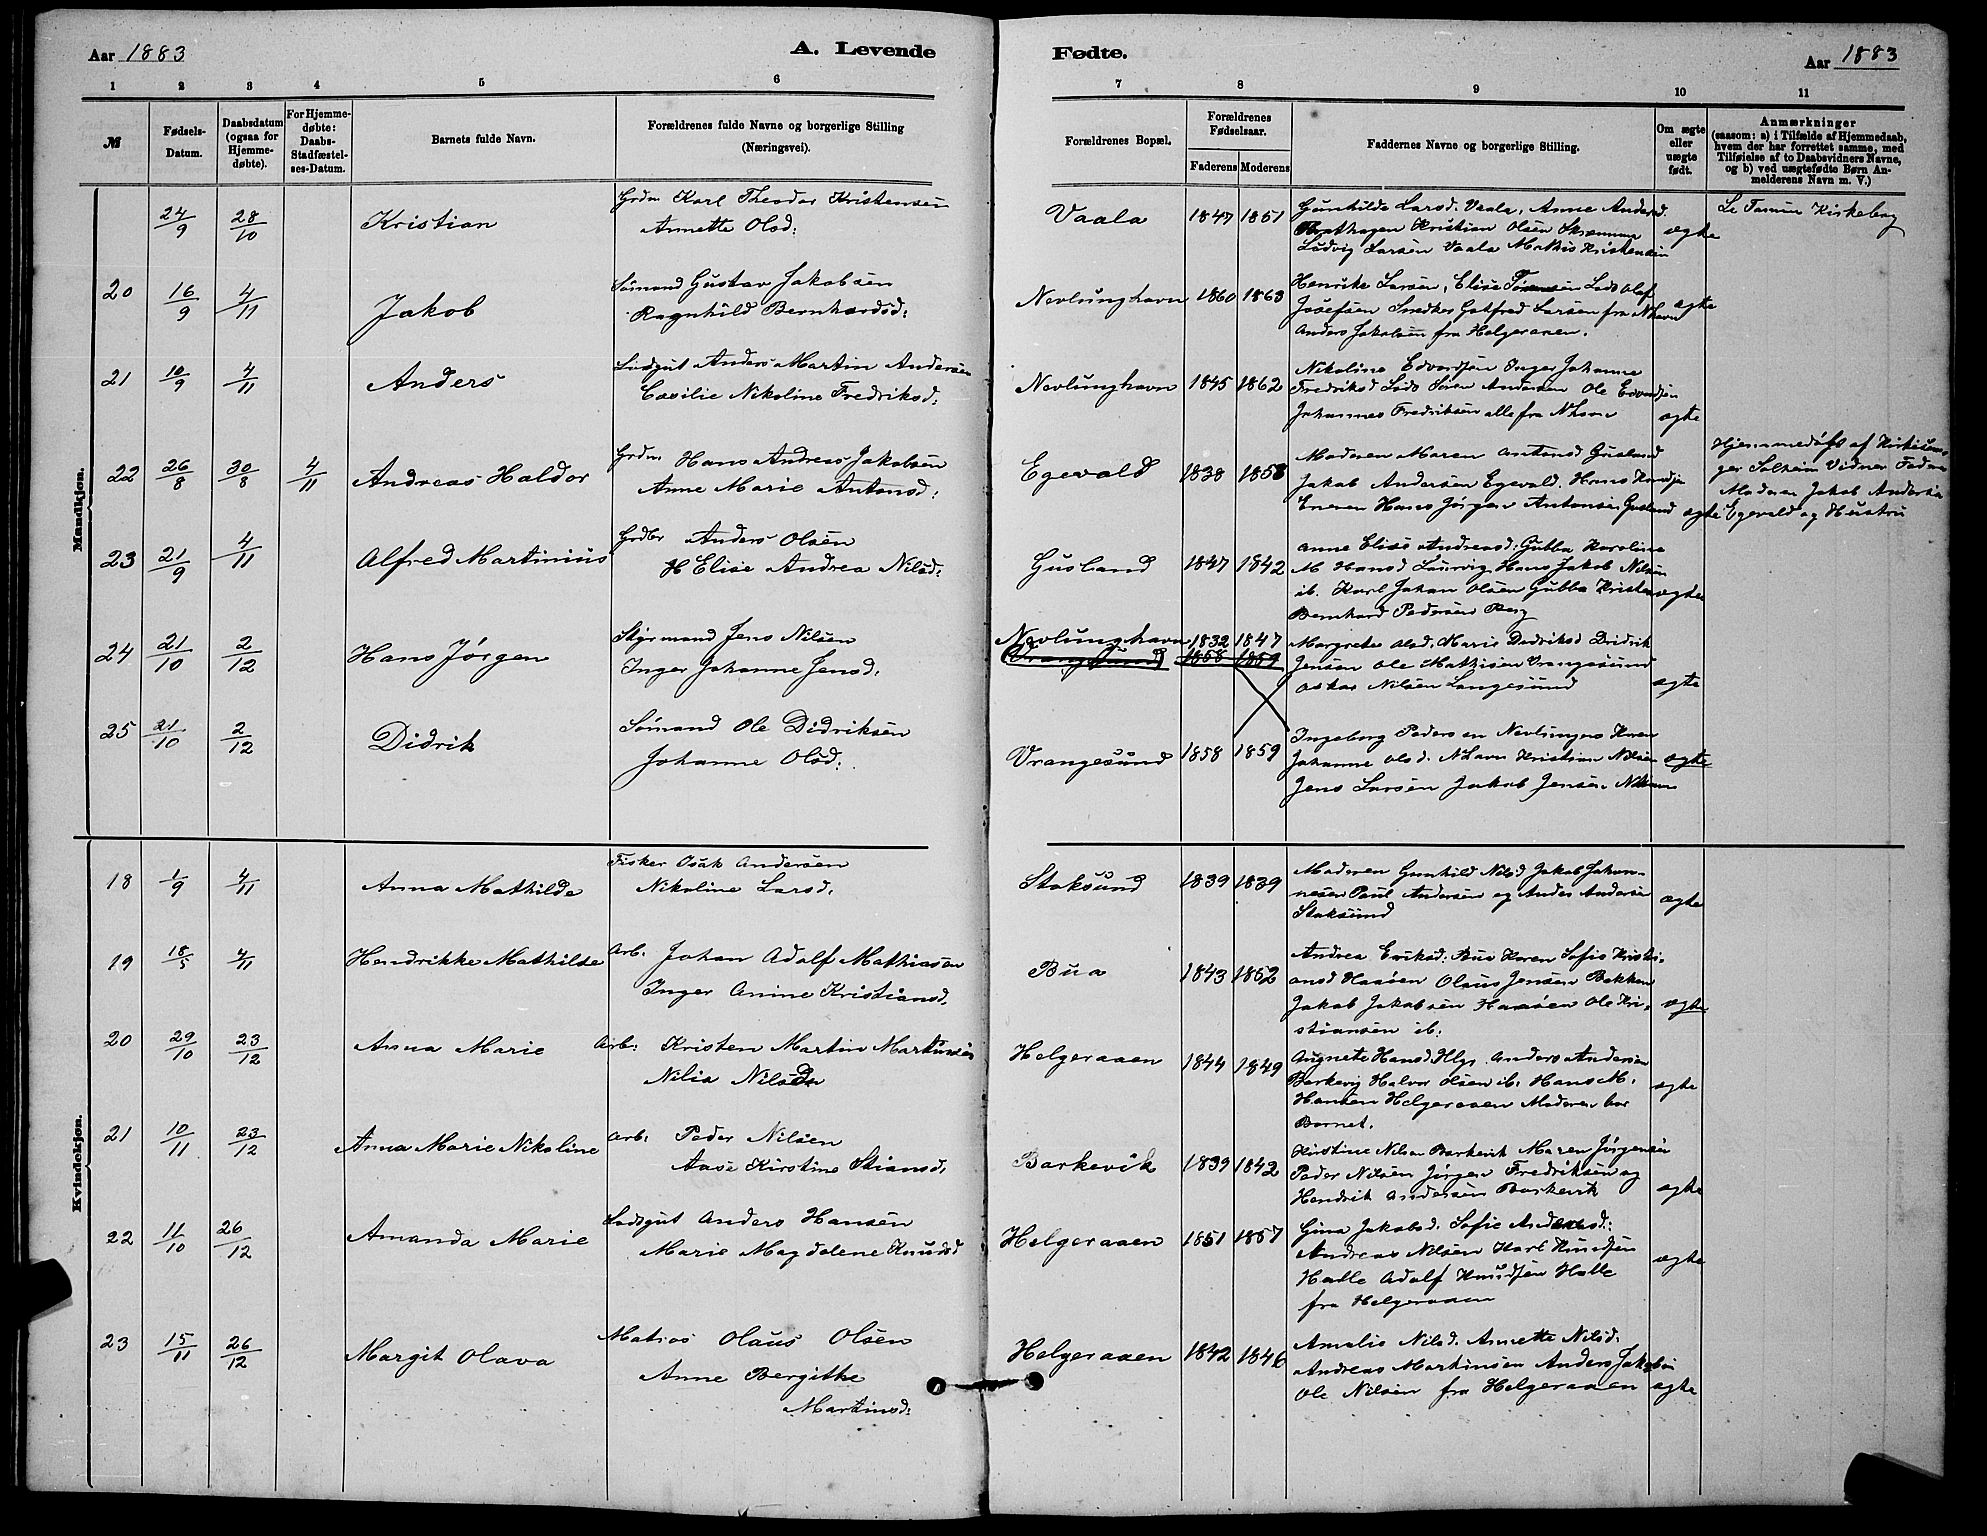 Aar 1883
A. Levende
Fødte.
Aar 1883
1 2 3 4 5 6 7 8 9 10 11
№
Fødsels-Datum.
Daabsdatum (ogsaa for Hjemme-døbte).
For Hjemme-døbte: Daabs-Stadfæstel-ses-Datum.
Barnets fulde Navn.
Forældrenes fulde Navne og borgerlige Stilling (Næringsvei).
Forældrenes Bopæl.
Forældrenes Fødselsaar.
Faderens Moderens
Faddernes Navne og borgerlige Stilling.
Om ægte eller uægte født.
Anmærkninger
(saasom: a) i Tilfælde af Hjemmedaab, hvem der har forrettet samme, med Tilføielse af to Daabsvidners Navne, og b) ved uægtefødte Børn An-melderens Navn m. V.)
Mandkjøn.
24/9 28/10 Kristian
Grdm Karl Theodor Kristensen
Annette Olsd:
Vaala 1847 1851
Gunhilde Larsd. Vaala, Anne Andersd.
Kristian Olsen
Ludvig Larsen Vaala Mathis Kristensen
ægte
Se Tanum Kirkebog
20 16/9 4/11 Jakob
Sømand Gustav Jakobsen
Ragnhild Bernhardsd:
Nevlunghavn 1860 1863
Henrike Larsen, Elise Lods Olaf
Josefsen Snedker Gotfred Larsen fra NHavn
Anders Jakobsen fra Helgeraaen.
ægte
21 10/9 4/11 Anders
Lodsgut Anders Martin Andersen
Cæsilie Nikoline Fredriksd:
Nevlunghavn 1845 1862
Nikoline Edvardsen Inger Johanne
Fredriksd Lods Søren Andersen Ole Edvardsen
Johannes Fredriksen alle fra NHavn
ægte
22 26/8 30/8 4/11 Andreas Haldor
Grdm Hans Andreas Jakobsen
Anne Marie Antonsd:
Egevald 1838 1858
Moderen Maren Antonsd Gusland
Jakob Andersen Egevald. Hans Knudsen
Hans Jørgen Antonsen Gusland
ægte
Hjemmedøbt af Kirkesan-
ger Solheim Vidner Faderen
Moderen Jakob Andersen
Egevald og Hustru
23 21/9 4/11 Alfred Martinius
Grdbr Anders Olsen
H Elise Andrea Nilsd:
Gusland 1847 1842
Anne Elise Andreasd: Gubba Karoline
M Hansd Laurvig, Hans Jakob Nilsen
ib. Karl Johan Olsen Gubba Kristen
Bernhard Pedersen Berg
ægte
24 21/10 2/12 Hans Jørgen
Styrmand Jens Nilsen
Inger Johanne Jensd.
Nevlunghavn 1832 1847
Vrangesund 1858 1859
Margrete Olsd. Marie Dedriksd Didrik
Jensen Ole Mathisen Vrangesund
Oskar Nilsen Langesund
ægte
25 21/10 2/12 Didrik
Sømand Ole Didriksen
Johanne Olsd:
Vrangesund 1858 1859
Ingeborg Pedersen Karen
Johanne Olsd. NHavn Kristian Nilsen
Jens Larsen Jakob Jensen NHavn
ægte
Kvindekjøn.
18 1/9 4/11 Anna Mathilde
Fisker Osak Andersen
Nikoline Larsd.
Stoksund 1839 1839
Moderen Gunhild Nilsd Jakob Johan-
nesen Paul Andersen og Anders Andersen
Stoksund
ægte
19 18/5 4/11 Hendrikke Mathilde
Arb. Johan Adolf Mathiasen
Inger Anine Kristiansd.
Bua 1843 1852
Andrea Eriksd. Bua Karen Sofie Kristi-
ansd Haaøen Olaus Jensen Bakken
Jakob Jakobsen Haaøen Ole Kri-
stiansen ib.
ægte
20 29/10 23/12 Anna Marie
Arb: Kristen Martin Martinsen
Nilia Nilsd
Helgeraaen 1844 1849
Augnete Hansd. Hlgr. Anders Andersen
Barkevig Halvor Olsen ib: Hans M.
Hansen Helgeraaen Moderen bar
Barnet.
ægte
21 10/11 23/12 Anna Marie Nikoline
Arb: Peder Nilsen
Aase Kirstine Stiansd.
Barkevik 1839 1842
Kirstine Nilsen Barkevik Maren Jørgensen
Peder Nilsen Jørgen Fredriksen og
Hendrik Andersen Barkevik
ægte
22 11/10 26/12 Amanda Marie
Lodsgut Anders Hansen
Marie Magdalene Knudsd
Helgeraaen 1851 1857
Gina Jakobsd. Sofie Andersd:
Andreas Nilsen Karl Knudsen
Halle Adolf Knudsen Halle
fra Helgeraaen
ægte
23 15/11 26/12 Margit Olava
Matros Olaus Olsen
Anne Bergithe
Martinsd:
Helgeraaen 1842 1846
Amalie Nilsd. Annette Nilsd:
Andreas Martinsen Anders Jakobsen
Ole Nilsen fra Helgeraaen
ægte